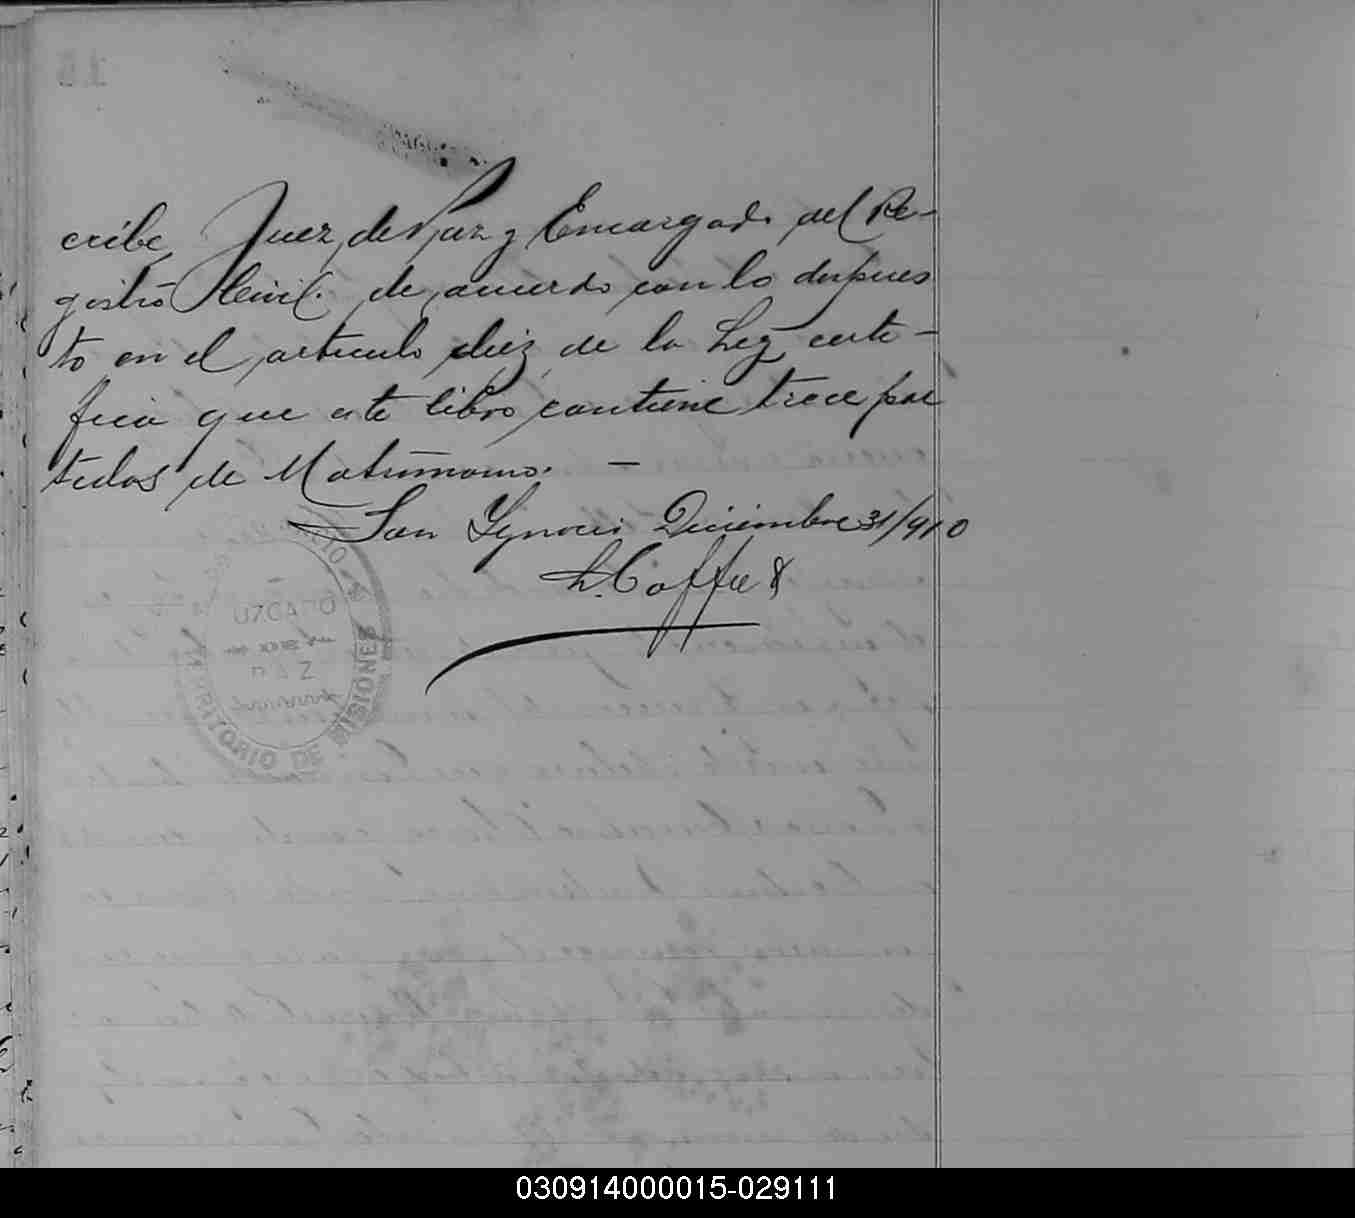 cribe Juez de Paz y Encargado del Re-
gistro Civil. de acuerdo con lo dispues
to en el articulo diez de la Ley certi-
fica que este libro contiene trece par
tidas de Matrimonio. —
San Ygnacio Diciembre 31/910
L. Coffee
JUZGADO
DE
PAZ
TERRITORIO DE MISIONES
030914000015-029111